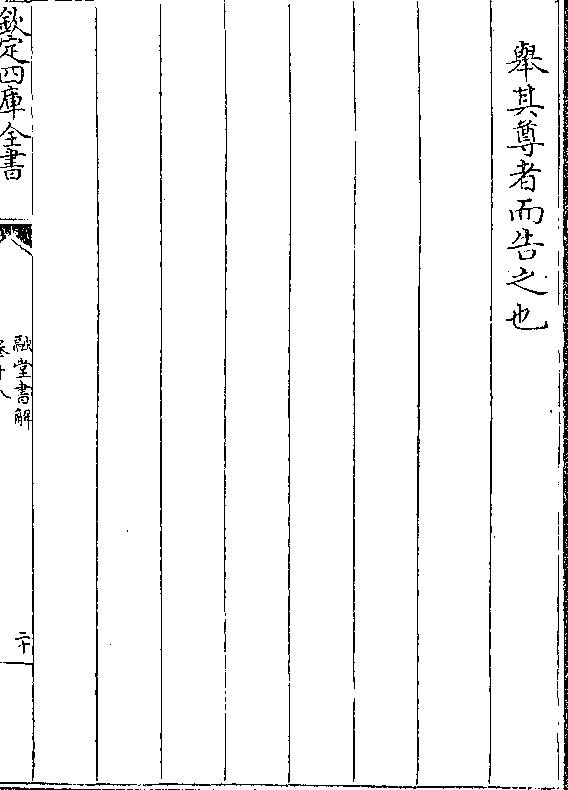 舉其尊者而告之也
欽定四庫全書
融堂書解
卷十八
二十